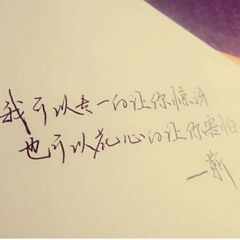 我可以专一的让你惊讶
也可以花心的让你害怕
一靳